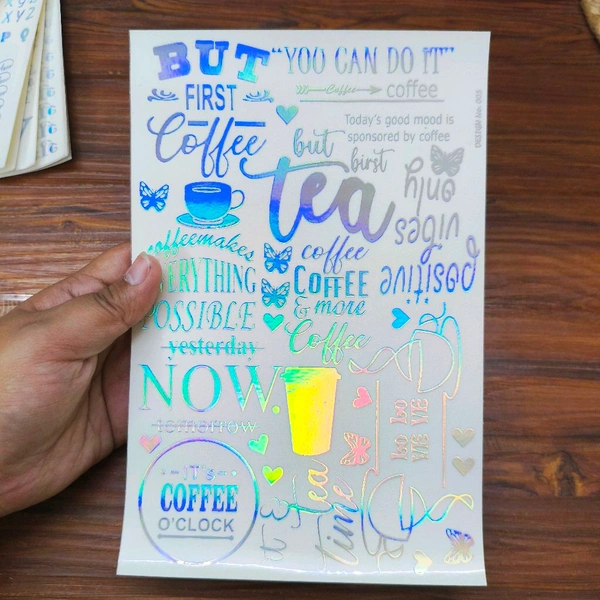 BUT
FIRST
Coffee
"YOU CAN DO IT"
Coffee coffee
Today's good mood is
sponsored by coffee
DESIGN No. 003
but
birst
tea
positive
vibes
only
coffeemakes
EVERYTHING
POSSIBLE
coffee
COFFEE
& more
Coffee
yesterday
NOW.
tomorrow
IT'S
COFFEE
O'CLOCK
tea
time